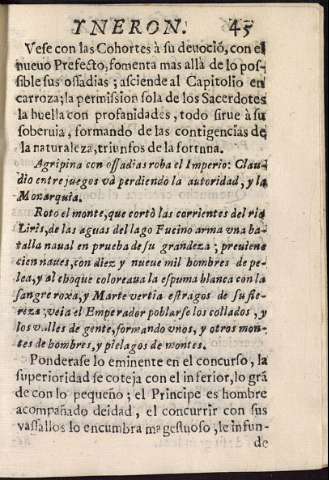 YNERON. 45
Vese con las Cohortes à su deuoció, con el
nueuo Prefecto, fomenta mas allà de lo pos-
sible sus ossadias; asciende al Capitolio en
carroza; la permission sola de los Sacerdotes
la huella con profanidades, todo sirue à su
soberuia, formando de las contigencias de
la naturaleza, triunfos de la fortuna.
Agripina con ossadias roba el Imperio: Clau
dio entre juegos và perdiendo la autoridad, y la
Monarquia.
Roto el monte, que cortò las corrientes del rio
Liris, de las aguas del lago Fucino arma vna ba-
talla naual en prueba de su grandeza; preuiene
cien naues, con diez y nueue mil hombres de pe-
lea, y al choque coloreaua la espuma blanca con la
sangre roxa, y Marte vertia estragos de su fie-
reza; veia el Emperador poblarse los collados, y
los valles de gente, formando vnos, y otros mon-
tes de hombres, y pielagos de montes.
Ponderase lo eminente en el concurso, la
superioridad se coteja con el inferior, lo grã
de con lo pequeño; el Principe es hombre
acompañado deidad, el concurrir con sus
vassallos lo encumbra magestuoso, le infun-
de